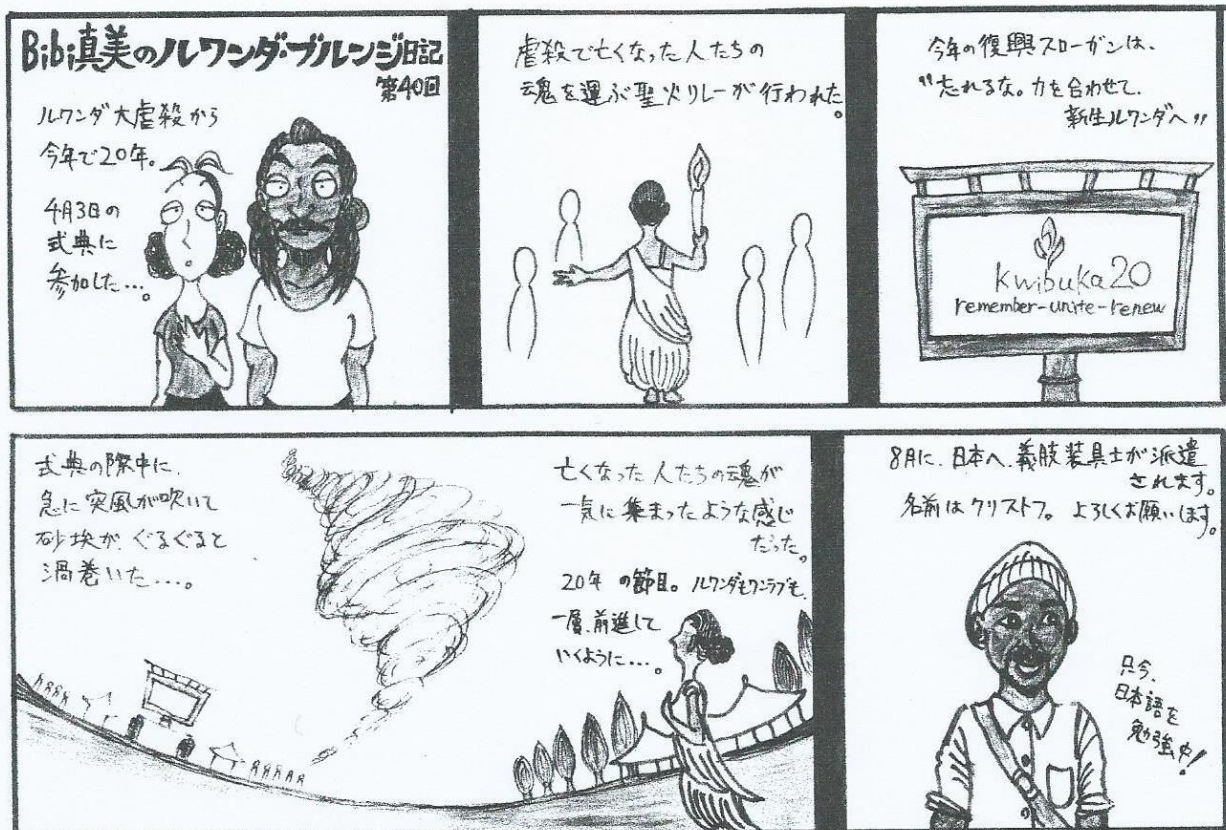 Bibi真美のルワンダ・ブルンジ日記
第40回
ルワンダ大虐殺から
今年で20年。
4月3日の
式典に
参加した…。
虐殺で亡くなった人たちの
魂を運ぶ聖火リレーが行われた。
今年の復興スローガンは、
"忘れるな。力を合わせて、
新生ルワンダへ"
kwibuka20
remember-unite-renew
式典の際中に、
急に突風が吹いて
砂埃が、ぐるぐると
渦巻いた…。
亡くなった人たちの魂が
一気に集まったような感じ
だった。
20年の節目。ルワンダもワンラブも、
一層、前進して
いくように…。
8月に、日本へ、義肢装具士が派遣
されます。
名前はクリストフ。よろしくお願いします。
只今、
日本語を
勉強中!